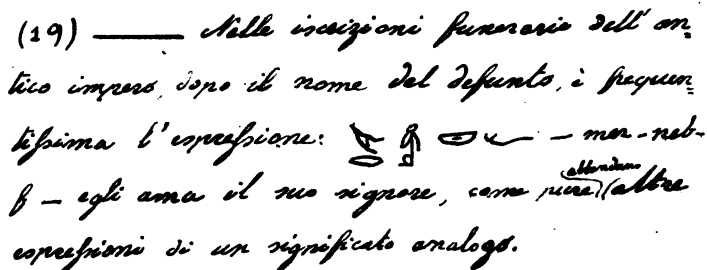 (19) ——— Nelle iscrizioni funerarie dell' an=
tico impero, dopo il nome del defunto, è frequen=
tissima l'espressione: 𓌸𓂋 𓋴 𓎟 𓆑 — mer-neb-
f — egli ama il suo signore, come pure (abbondano altre
espressioni di un significato analogo.